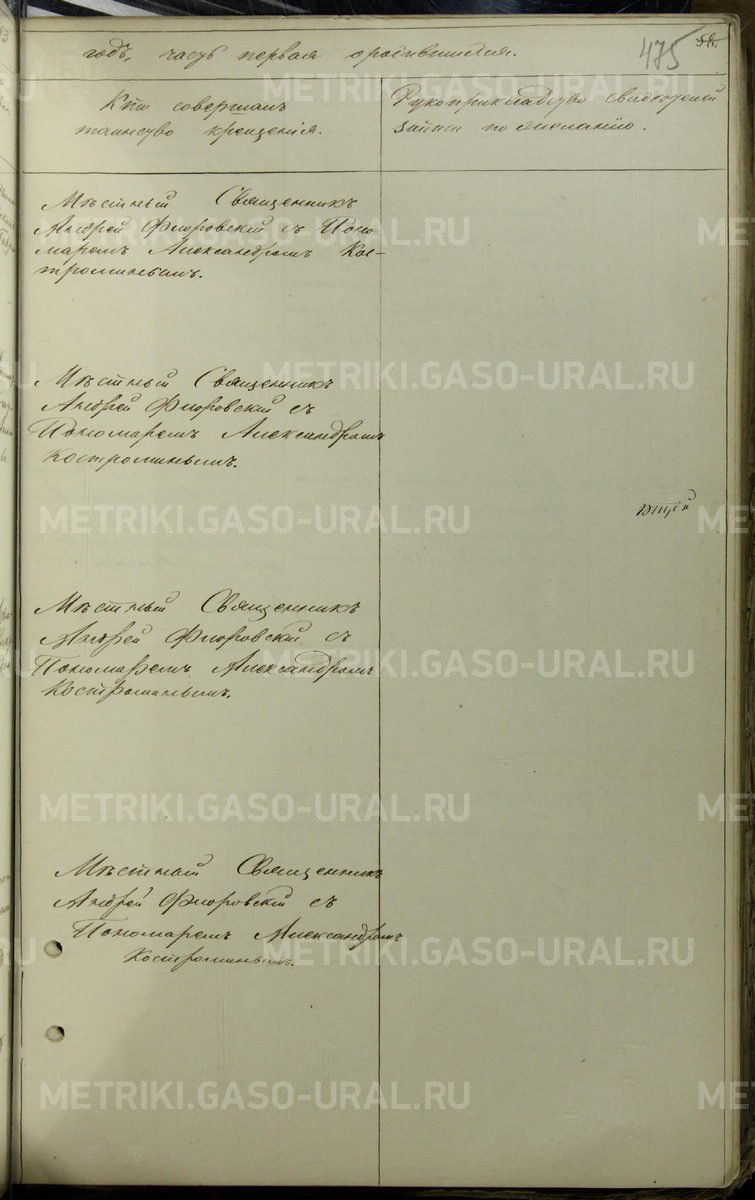 годъ, часть первая о родившихся.
475
54.
Кто совершалъ
таинство крещенія.
Рукоприкладство свидѣтелей
записи по желанію.
Мѣстный Священникъ
Андрей Флоровскій съ Поно
маремъ Александромъ Кос-
троминымъ.
Мѣстный Священникъ
Андрей Флоровскій съ
Пономаремъ Александромъ
Костроминымъ.
Мѣстный Священникъ
Андрей Флоровскій съ
Пономаремъ Александромъ
Костроминымъ.
Мѣстный Священникъ
Андрей Флоровскій съ
Пономаремъ Александромъ
Костроминымъ.
METRIKI.GASO-URAL.RU